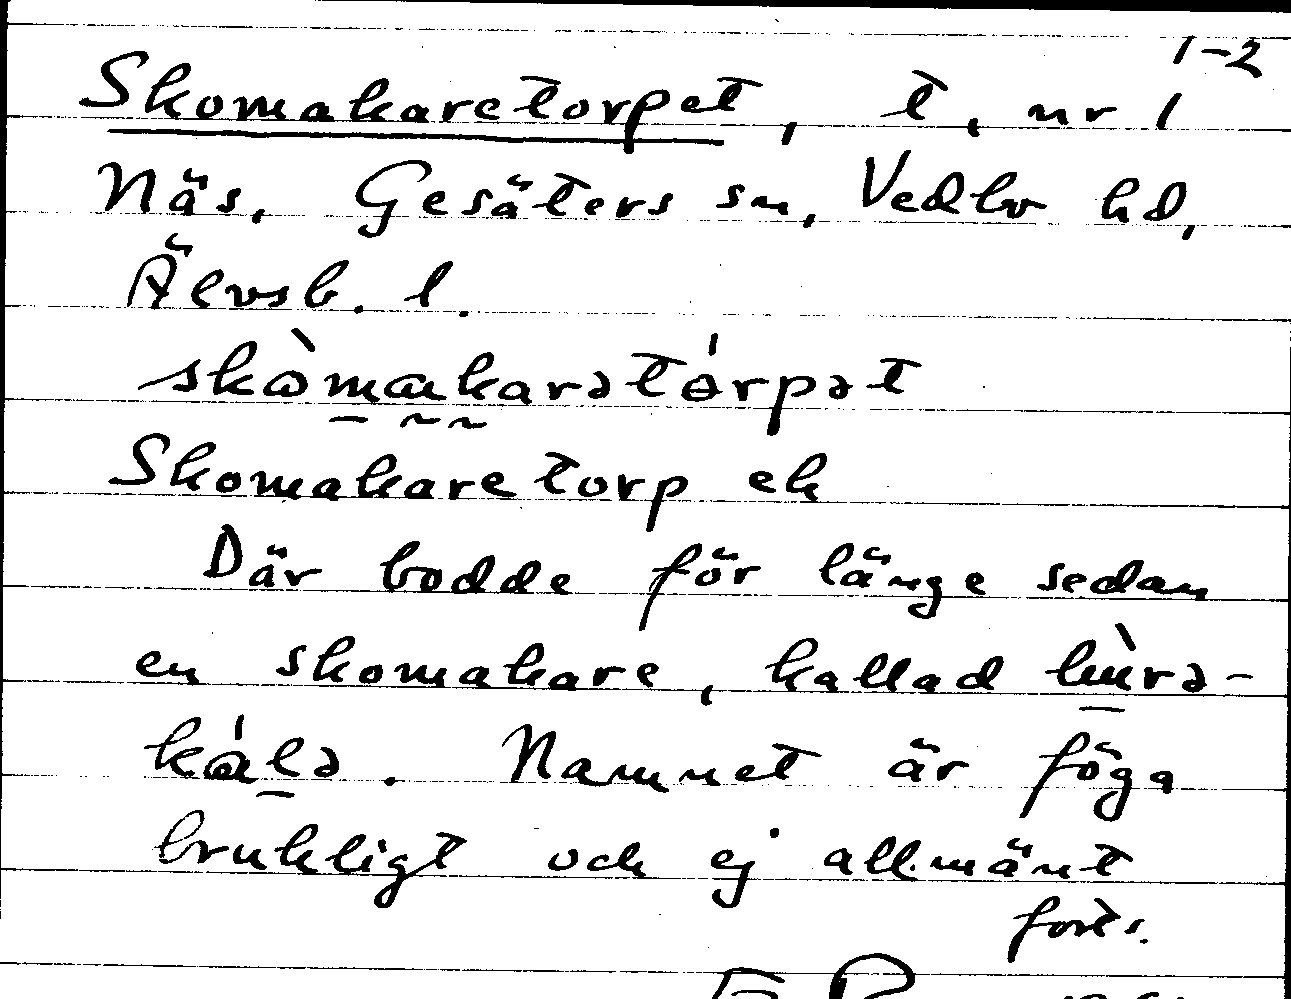 1-2
Skomakaretorpet, t, nr 1
Näs, Gesäters sn, Vedbo hd,
Älvsb. l.
skòmakarətórpət
Skomakaretorp ek
Där bodde för länge sedan
en skomakare, kallad
Namnet är föga
brukligt och ej allmänt
forts.